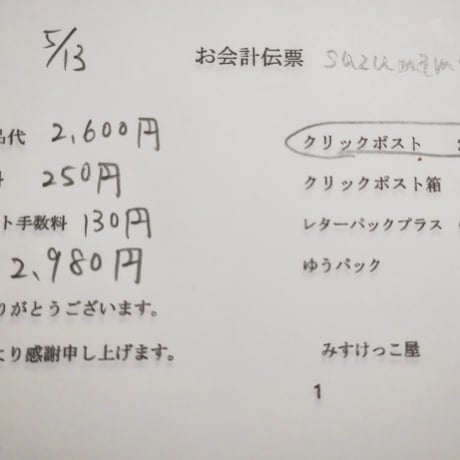 5/13
お会計伝票
品代 2,600円
クリックポスト
250円
クリックポスト箱
ト手数料 130円
レターパックプラス
2,980円
ゆうパック
りがとうございます。
より感謝申し上げます。
みすけっこ屋
1